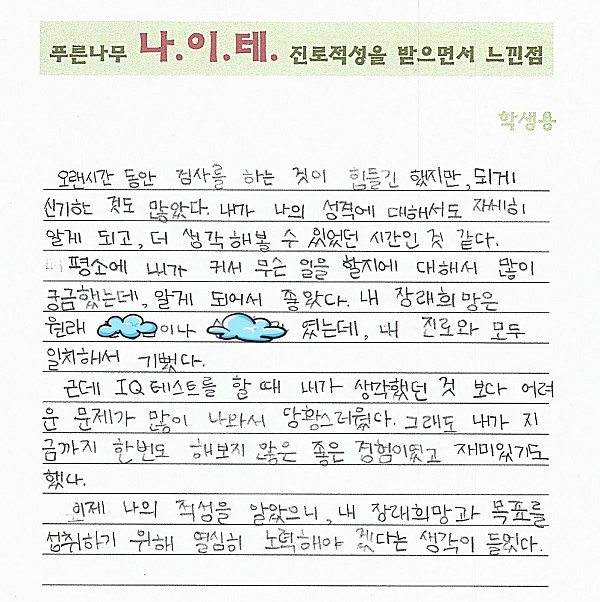 푸른나무 나.이.테. 진로적성을 받으면서 느낀점
학생용
오랜시간 동안 검사를 하는 것이 힘들긴 했지만, 되게
신기한 것도 많았다. 내가 나의 성격에 대해서도 자세히
알게 되고, 더 생각해볼 수 있었던 시간인 것 같다.
평소에 내가 커서 무슨 일을 할지에 대해서 많이
궁금했는데, 알게 되어서 좋았다. 내 장래희망은
원래 이나 였는데, 내 진로와 모두
일치해서 기뻤다.
근데 IQ테스트를 할 때 내가 생각했던 것 보다 어려
운 문제가 많이 나와서 당황스러웠다. 그래도 내가 지
금까지 한번도 해보지 않은 좋은 경험이였고 재미있기도
했다.
이제 나의 적성을 알았으니, 내 장래희망과 목표를
성취하기 위해 열심히 노력해야 겠다는 생각이 들었다.